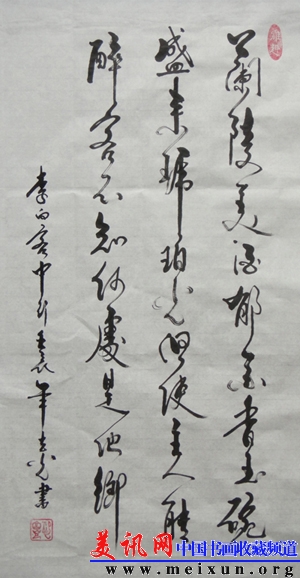 蘭陵美酒郁金香玉碗
盛来琥珀光但使主人能
醉客不知何處是他鄉
李白客中行壬辰年書
美讯网 中国书画收藏频道
www.meixun.org